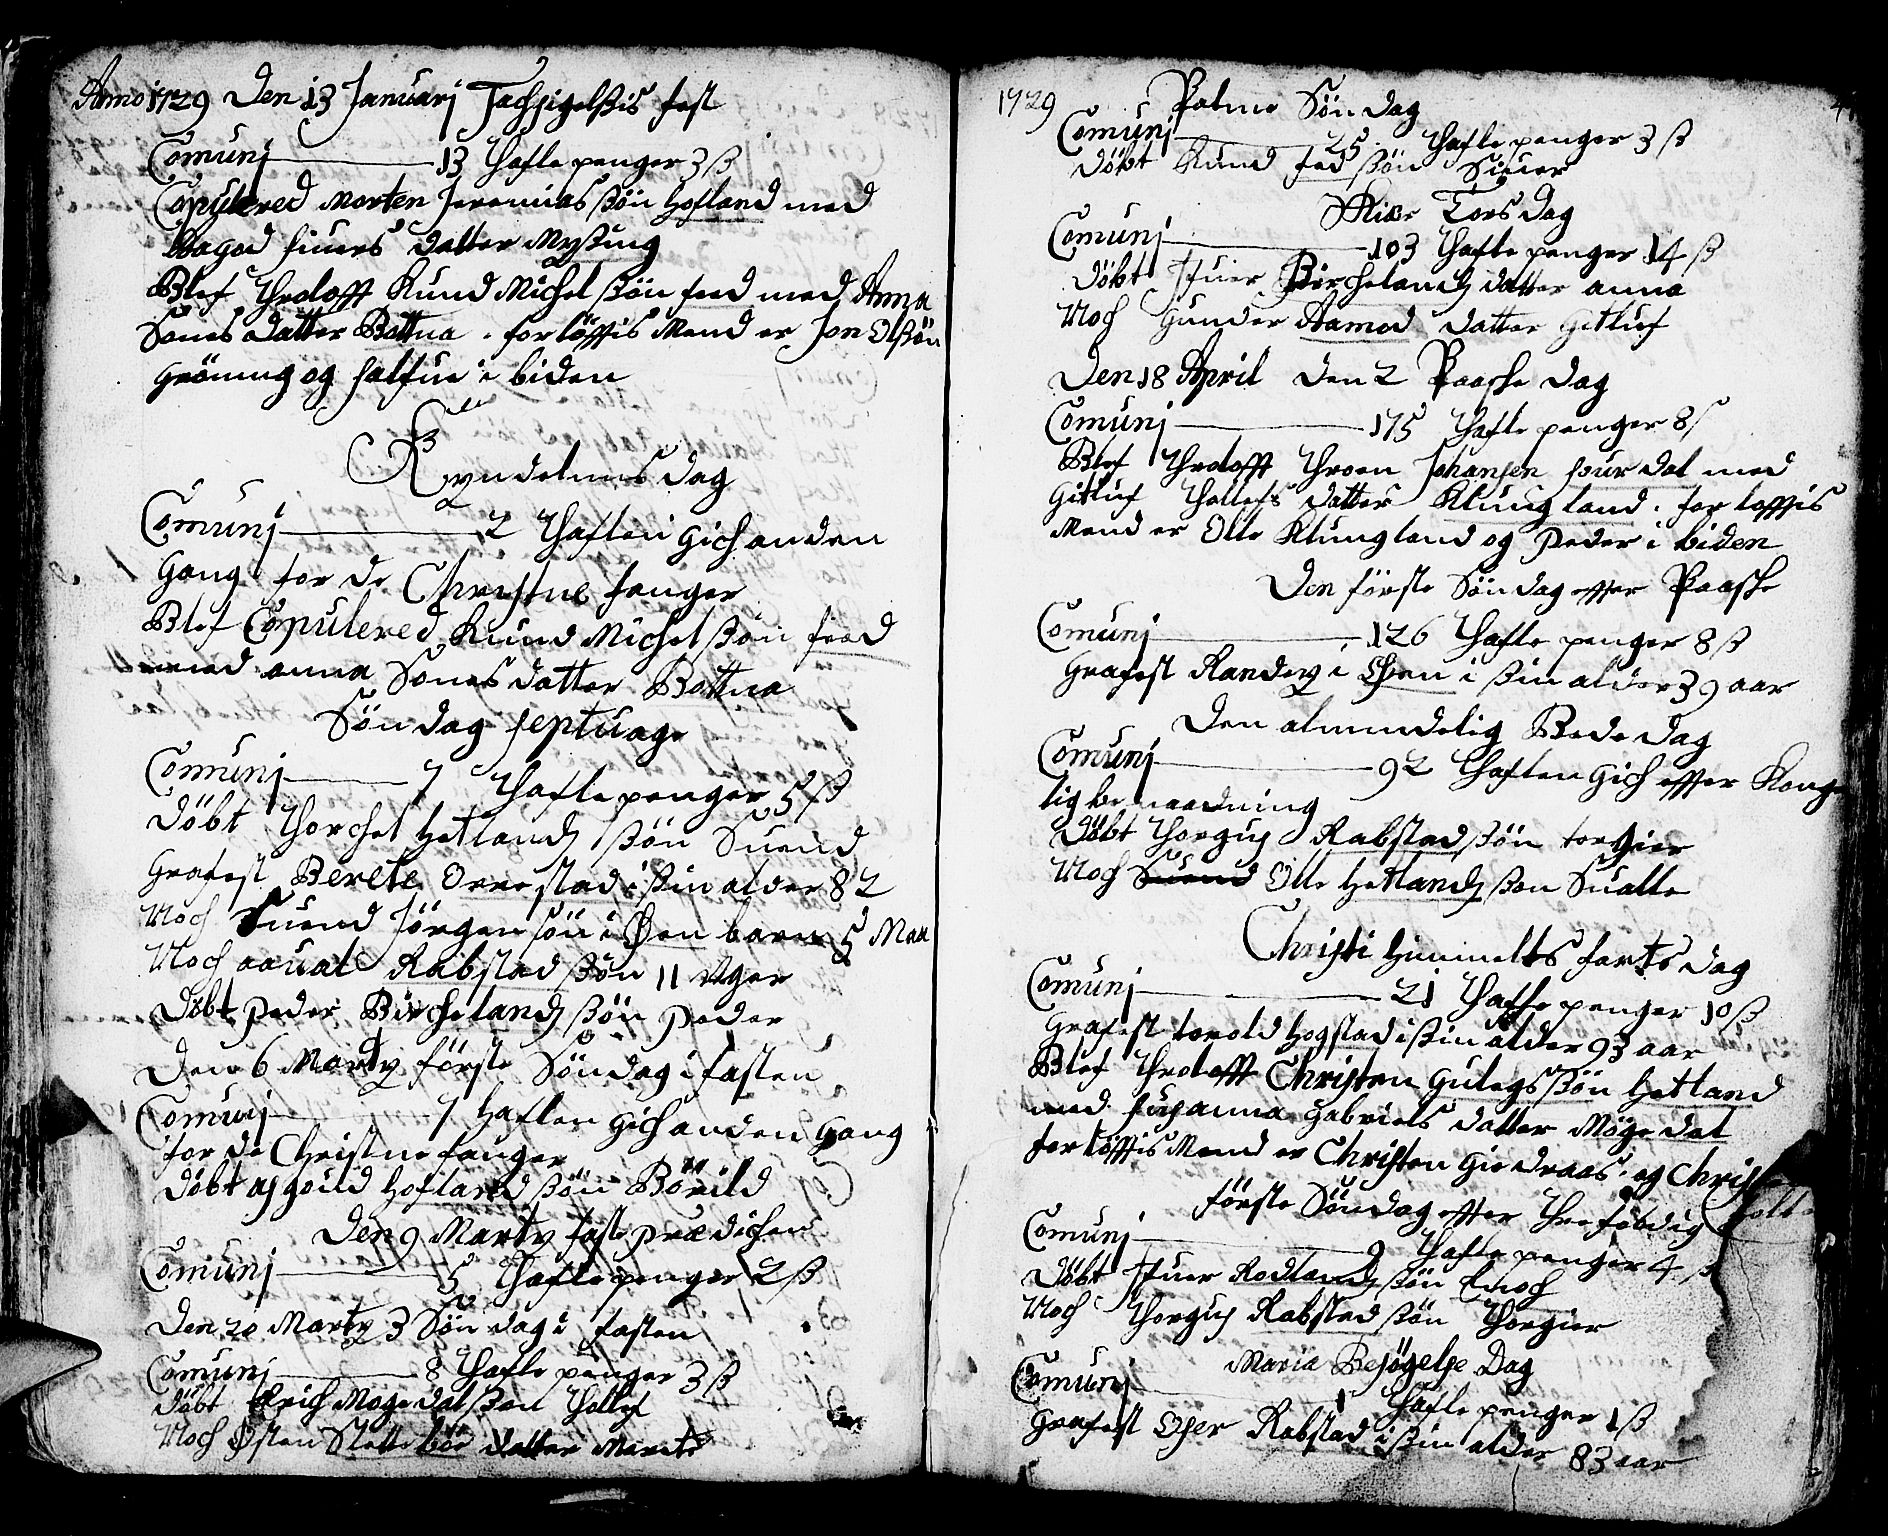 Anno 1729 Den 13 Januarj Tachsigelsis fest
Comunj 13 Thafle penger 3 ß
Copulered Morten Jeremias ßön Hofland med
Aagad Siuers datter Myßing
Blef Throlofft Knud Michel ßön fed med Anna
Sones datter Bottna . forlöffis Mend er Jon Olßön
Gröning og Halfue i biden
Kyndelmes Dag
Comunj 2 Thaflen gich anden
Gang for de Christne fanger
Blef Copulered Knud Michel ßön feed
med anna Sones datter Bottna
Söndag septuage
Comunj 7 Thafle penger 5 ß
döbt Thorchel Hetlandz ßön Suend
Grafest Berete Orrestad i ßin alder 82
Noch Suend Jörgensön i Øen barn 5 Maa
Noch aaual Rabstad ßön 11 Vger
Döbt Peder Bircheland ßön Peder
Den 6 Marty förste Söndag i fasten
Comunj 7 Haflen gich anden Gang
for de Christne fanger
döbt asgoud Hofland ßön Börild
Den 9 Marty faste prædichen
Comunj 5 Thafle penger 2 ß
Den 20 Marty 3 Söndag i fasten
Comunj 8 Thafle penger 3 ß
döbt Erich Mogedal ßön Thollef
Noch Østen Sletteböe datter Marete
1729 Palme Söndag
Comunj 25 Thafle penger 3 ß
döbt Knud fed ßön Siuer
Skier Torsdag
Comunj 103 Thafle penger 14 ß
döbt Ifuer Birchelandz datter anna
Noch Gunder Aamod datter Gitluf
Den 18 April den 2 Paasche dag
Comunj 175 Thafle penger 8 ß
Blef Throlofft Throen Johansen suurdal med
Gitluf Thollefs datter Klungland . forlöffis
Mend er Olle Klungland og Peder i biden
Den förste Söndag effter Paasche
Comunj 126 Thafle penger 8 ß
Grafest Randey i Øen i ßin alder 39 aar
Den almindelig Bededag
Comunj 92 Thaflen gich effter Konge
lig be naadning
Döbt Thorgus Rabstad ßön torgier
Noch Suend Olle Hetlandz ßøn Sualle
Christi Himmelfarts dag
Comunj 21 Thafle penger 10 ß
Grafest torold Hogstad i ßin alder 93 aar
Blef Throlofft Christen Gulegs ßön Hetland
med susanna Gabriels datter Mögedal
forlöffis Mend er Christen Giedraas . og Christen
förste Söndag effter Threfoldig
Comunj 9 Thafle penger 4 ß
Döbt Ifuer Rodlandz ßön Enoch
Noch Thorgus Rabstad ßön Thorgier
Maria Besögelse Dag
Comunj 1 Thafle penger 1 ß
Grafest Oser Rabstad i ßin alder 83 aar